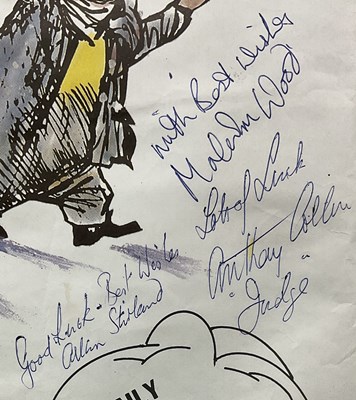 with Best wishes
Malcolm Wood
Lots of Luck
Anthony Collin
"Judge"
Good Luck - Best Wishes
Allan Stirland
ILY